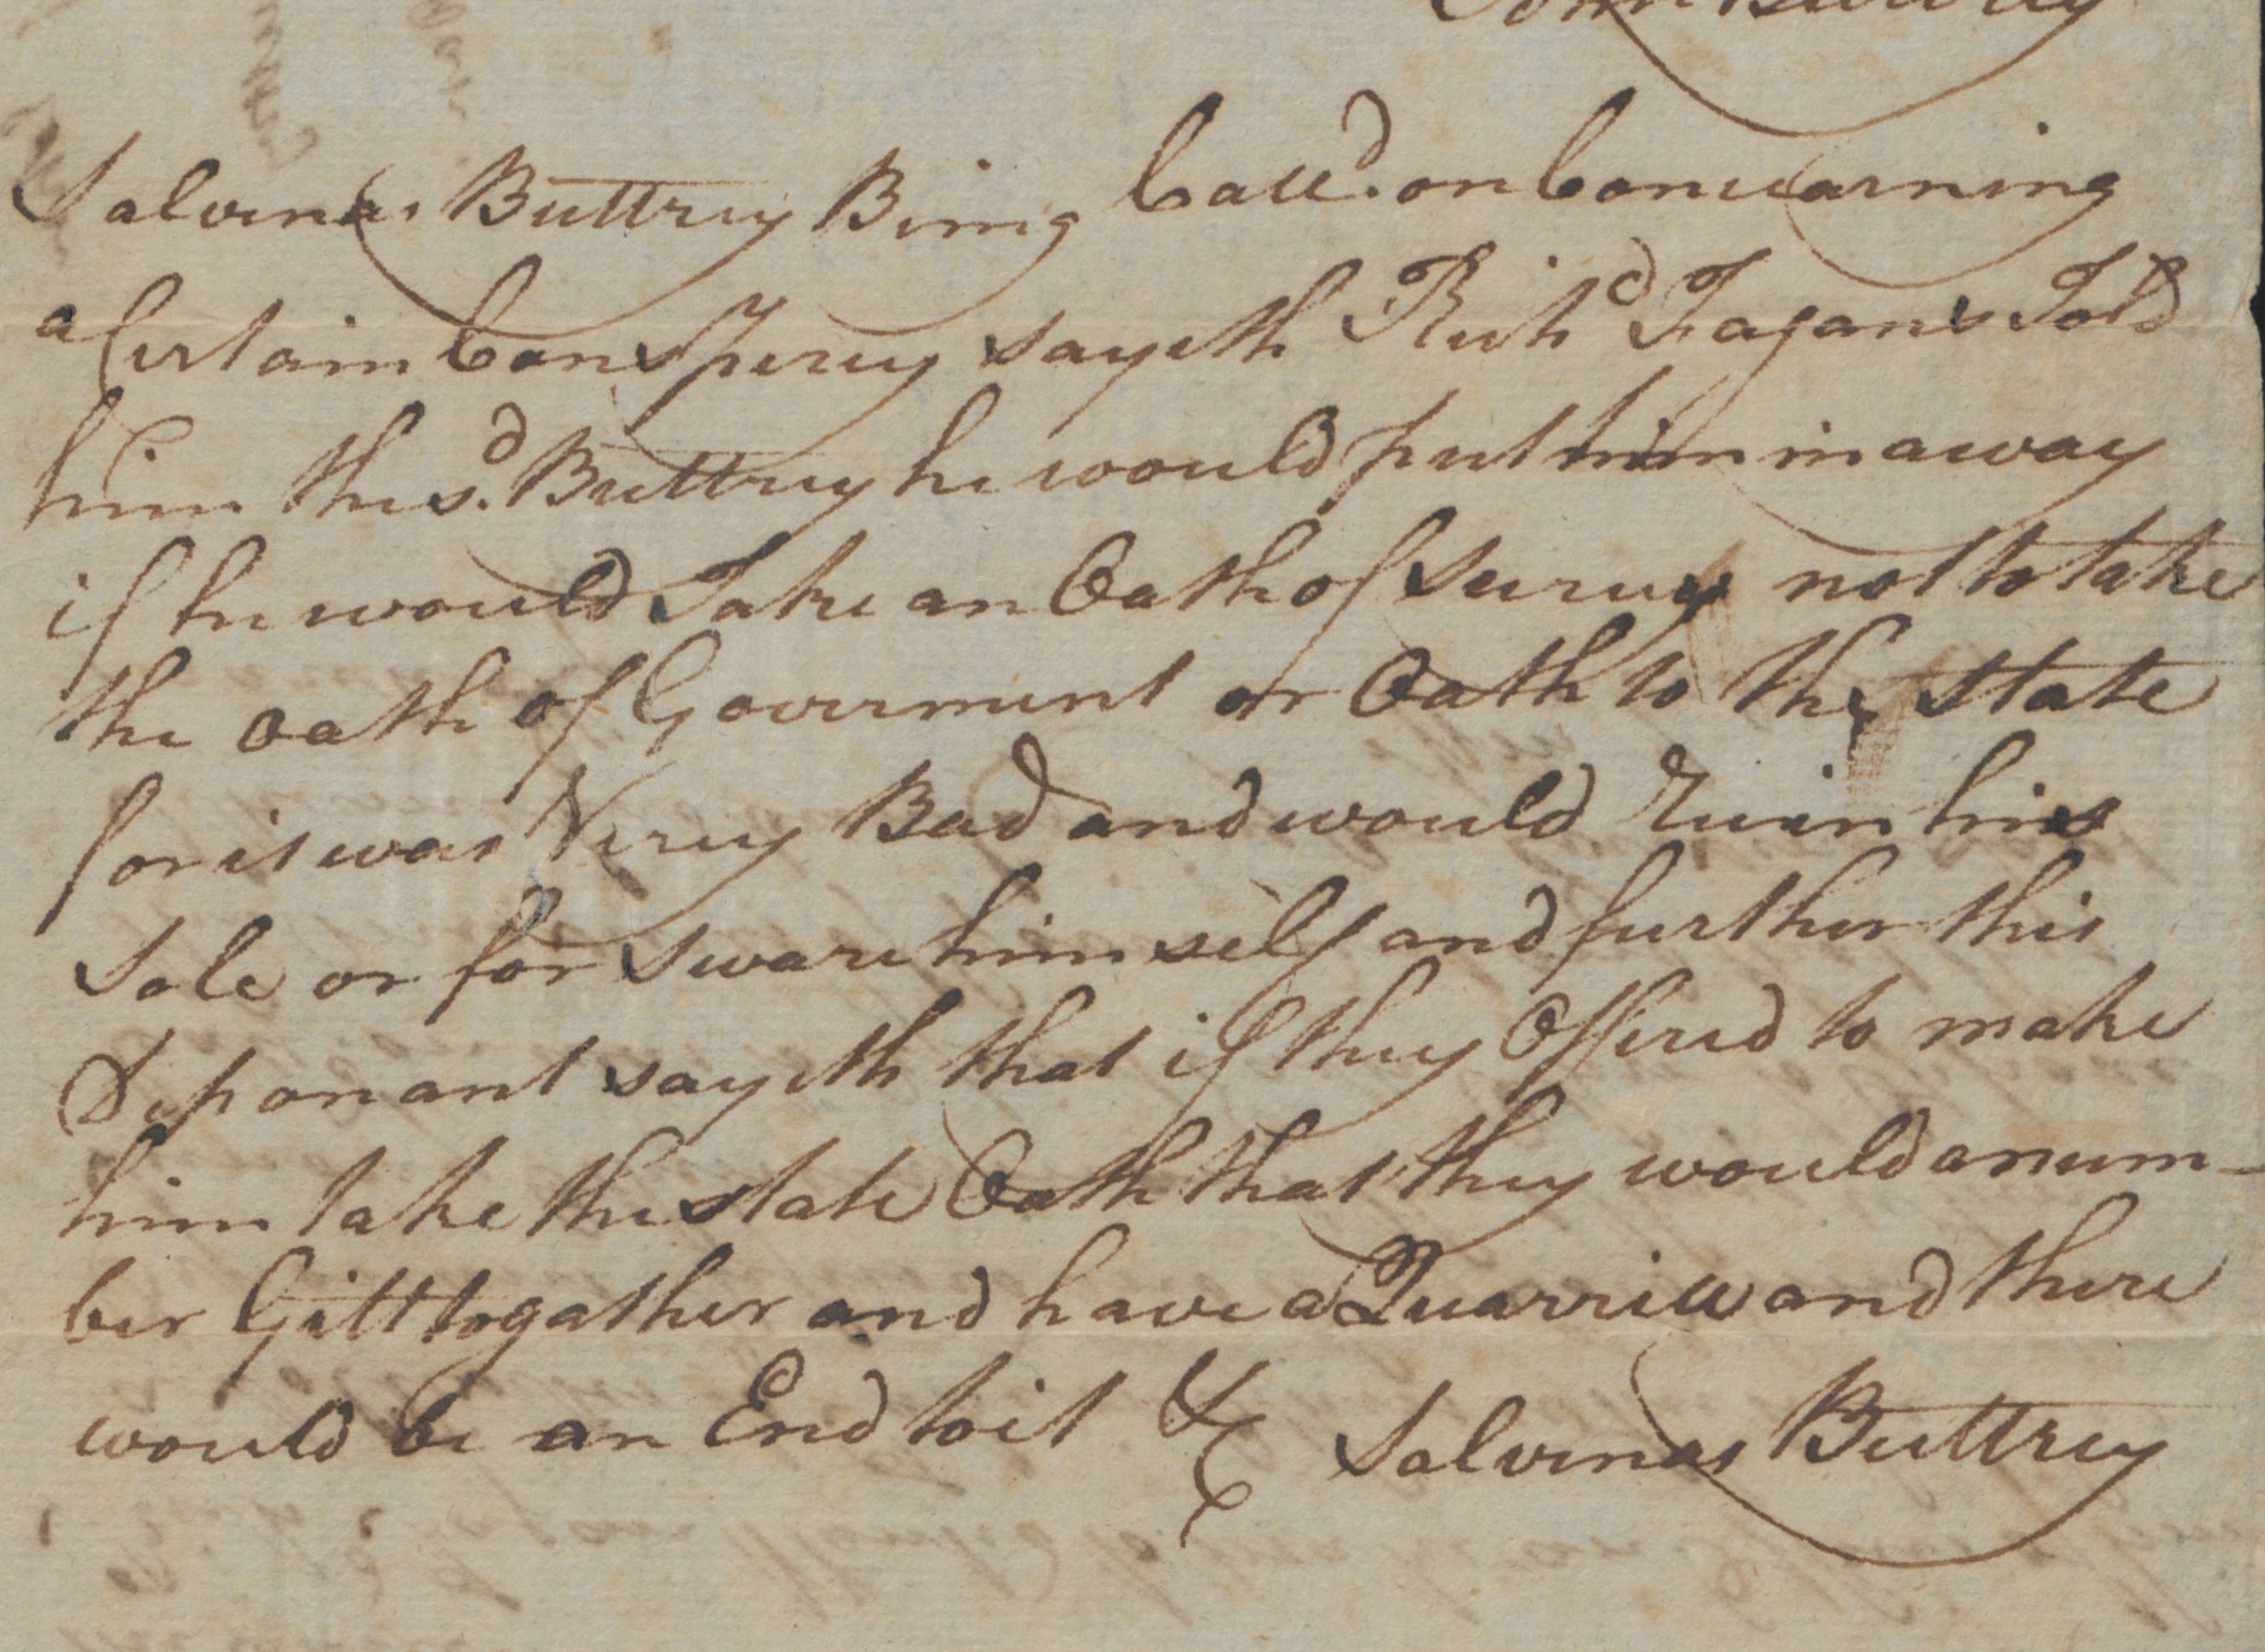 Salvenas Buttrey Being Call.d on Concearning
a Certain Conspercy sayeth Rich.d Fagans Told
him the s.d Buttrey he would put him in a way
if he would Take an Oath of Secrecy not to take
the oath of Goverment or Oath to the state
for it was Very Bad and would Ruin his
Sole or for sware himself and further this
Deponant sayeth that if they Offered to make
him take the state Oath that they would a num-
ber Gitt togather and have a Quarriell and there
would be an End to it &c Salvenas Buttrey